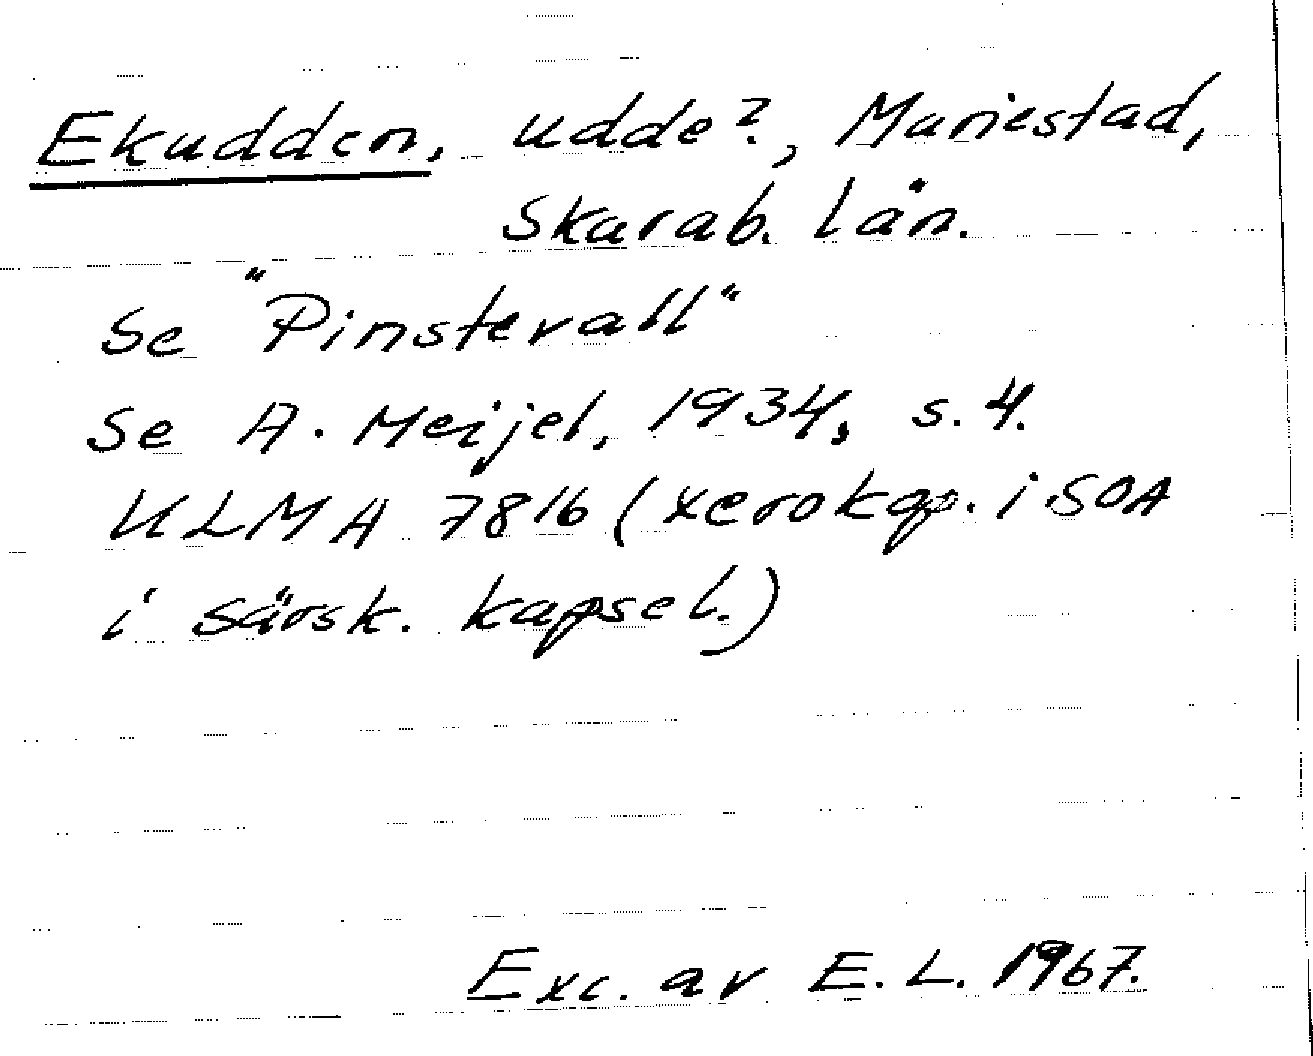 Ekudden, udde?, Mariestad,
Skarab. län.
Se "Pinstevall"
Se A. Meijel, 1934, s. 4.
ULMA 7816 (xerokop. i SOA
i särsk. kapsel.)
Exc. av E. L. 1967.